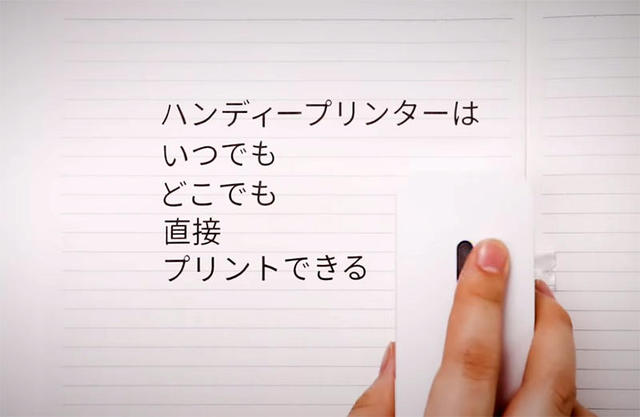 ハンディープリンターは
いつでも
どこでも
直接
プリントできる